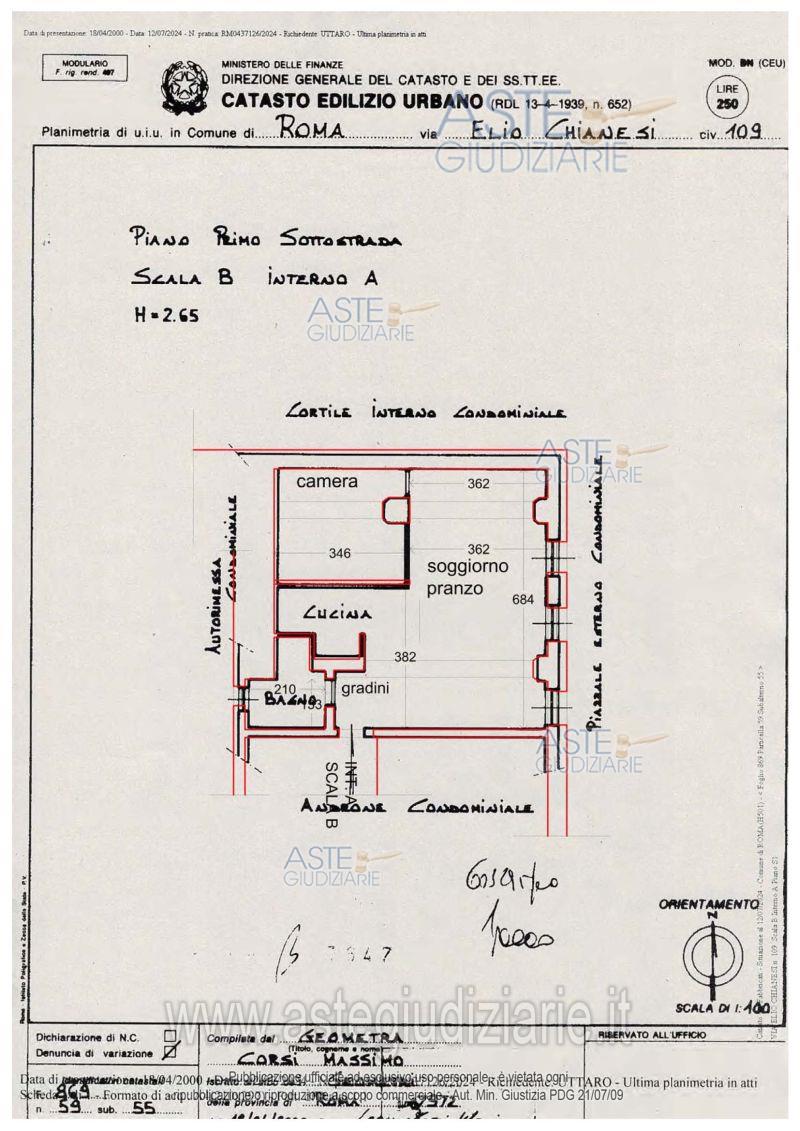 Data di presentazione: 18/04/2000 - Data: 12/07/2024 - N. pratica: RM0437126/2024 - Richiedente: UTTARO - Ultima planimetria in atti
MODULARIO
F. rig. rend. 497
MINISTERO DELLE FINANZE
DIREZIONE GENERALE DEL CATASTO E DEI SS.TT.EE.
CATASTO EDILIZIO URBANO (RDL 13-4-1939, n. 652)
MOD. BN (CEU)
LIRE
250
Planimetria di u.i.u. in Comune di ROMA via ELIO CHIANESI civ. 109
ASTE
GIUDIZIARIE
PIANO PRIMO SOTTOSTRADA
SCALA B INTERNO A
H=2.65
ASTE
GIUDIZIARIE
CORTILE INTERNO CONDOMINIALE
ASTE
GIUDIZIARIE
camera
362
346
362
soggiorno
pranzo
684
CUCINA
382
210
gradini
BAGNO
193
AUTORIMESSA
CONDOMINIALE
PIAZZALE ESTERNO CONDOMINIALE
INT. A
SCALA B
ASTE
GIUDIZIARIE
ANDRONE CONDOMINIALE
ASTE
GIUDIZIARIE
ORIENTAMENTO
N
SCALA DI 1:100
Catasto dei Fabbricati - Situazione al 12/07/2024 - Comune di ROMA(H501) - < Foglio 869 Particella 59 Subalterno 55 >
VIA ELIO CHIANESI n. 109 Scala B Interno A Piano S1
Roma - Istituto Poligrafico e Zecca dello Stato - P.V.
www.astegiudiziarie.it
Dichiarazione di N.C.
Denuncia di variazione
Compilata dal GEOMETRA
(Titolo, cognome e nome)
CORSI MASSIMO
RISERVATO ALL'UFFICIO
Identificativi catastali
F. 869
n. 59 sub. 55
della provincia di ROMA
Pubblicazione ufficiale ad esclusivo uso personale - è vietata ogni
ripubblicazione o riproduzione a scopo commerciale - Aut. Min. Giustizia PDG 21/07/09
Richiedente: UTTARO - Ultima planimetria in atti